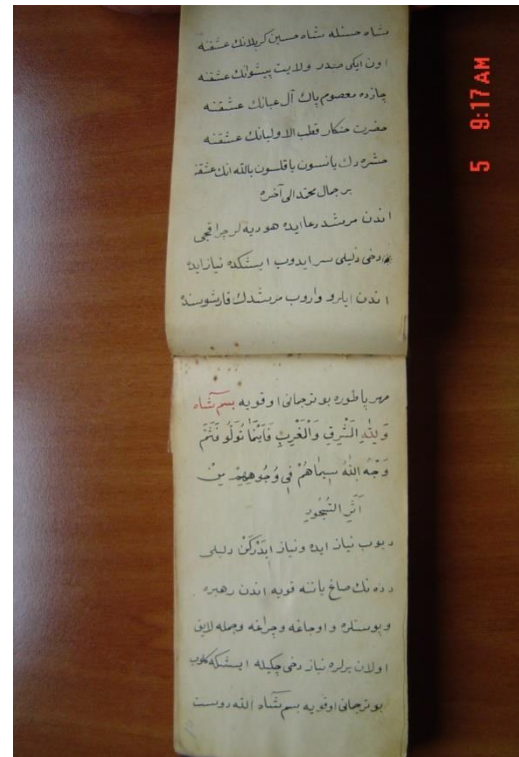 شاه حسنله شاه حسين كربلانك عشقنه
اون ايكى حيدر ولايت پيشوانك عشقنه
چارده معصوم پاك آل عبانك عشقنه
حضرت خنكار قطب الاوليانك عشقنه
حشره دك يانسون ياقلسون بالله انك عشقنه
بر جمال محمد الى آخره
اندن مرشد دعا ايده هو ديه لر چراقجى
دخى دليلى سر ايدوب ايشكده نياز ايده
اندن ايلرو واروب مرشدك قارشوسنده
مهر ياطوره بو ترجمانى اوقويه بسم شاه
وَلِلّٰهِ الْمَشْرِقِ وَالْمَغْرِبِ فَاَيْنَمَا تُوَلُّو فَثَمَّ
وَجْهُ اللّٰهُ سِيمَاهُمْ فِى وُجُوهِهِمْ مِنْ
اَثَرِ السُّجُودِ
ديوب نياز ايده ونياز ايدركن دليلى
دده نك صاغ ياننه قويه اندن رهبره
وپوستلره واوجاغه وچراغه وجمله لايق
اولان يرلره نياز دخى چكيله ايشكه كلوب
بو ترجمانى اوقويه بسم شاه الله دوست
5 9:17AM